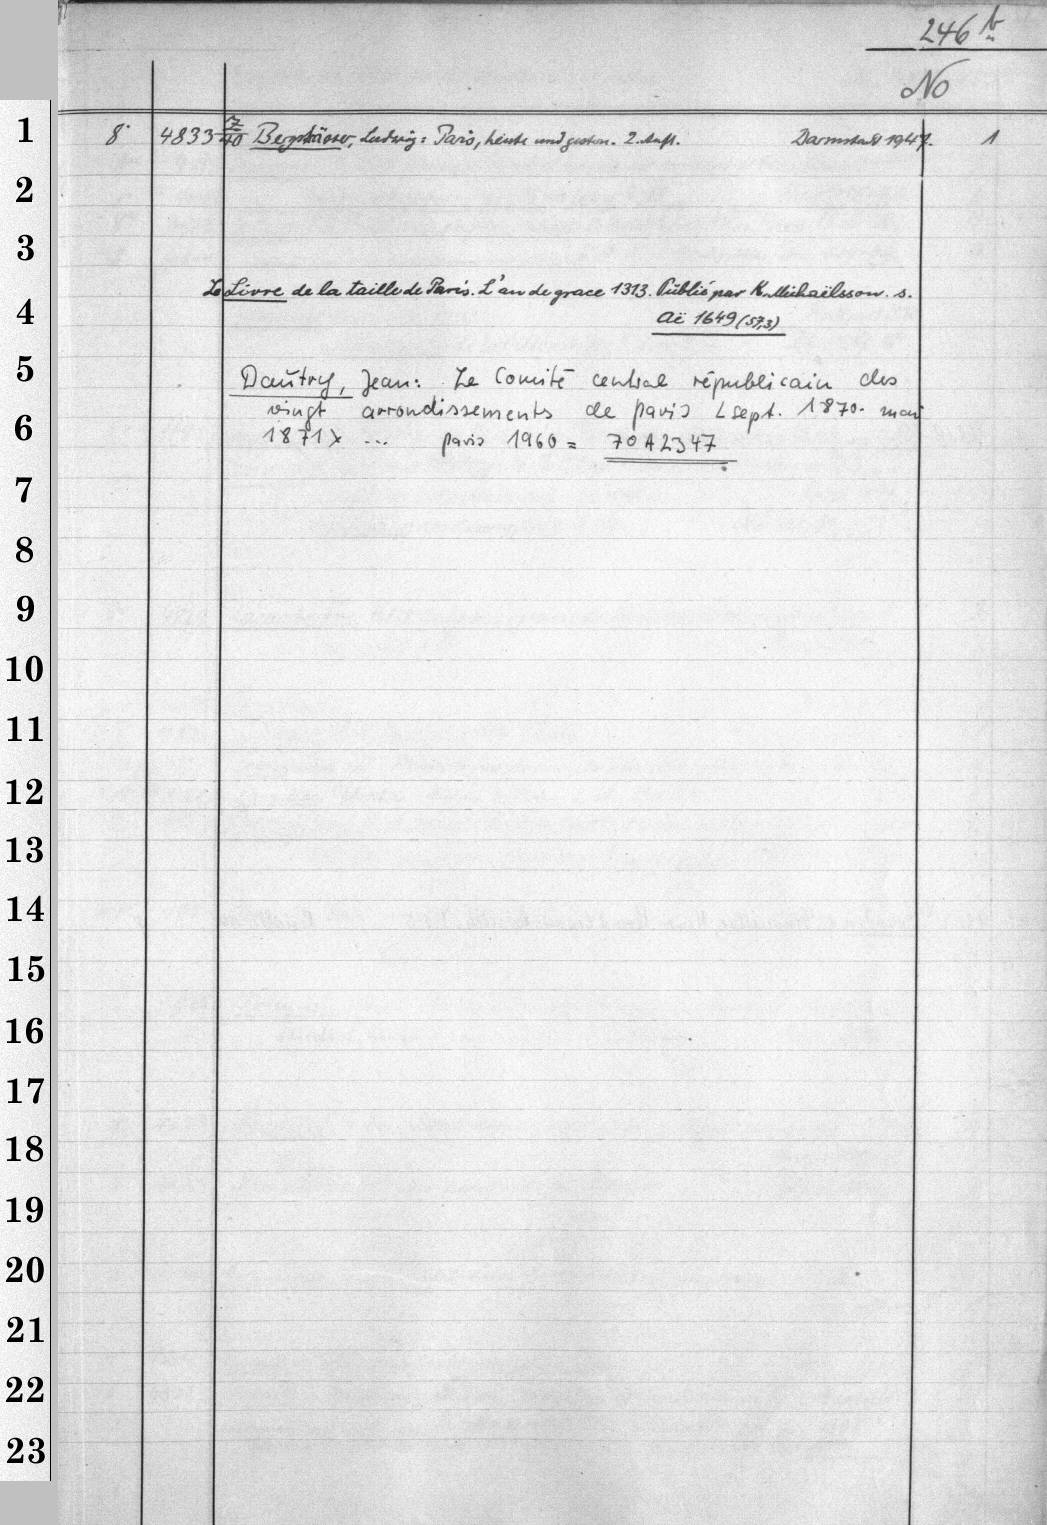 246 b
No
1 8° 4833 7/40 Bergsträsser, Ludwig: Paris, heute und gestern. 2. Aufl. Darmstadt 1947. 1
2
3
Le Livre de la taille de Paris. L'an de grace 1313. Publié par K. Michaëlsson. s.
4 aë 1649 (57,3)
5 Dautry, Jean: Le Comité central républicain des
vingt arrondissements de paris (sept. 1870- mai
6 1871) ... paris 1960 = 70 A 2347
7
8
9
10
11
12
13
14
15
16
17
18
19
20
21
22
23